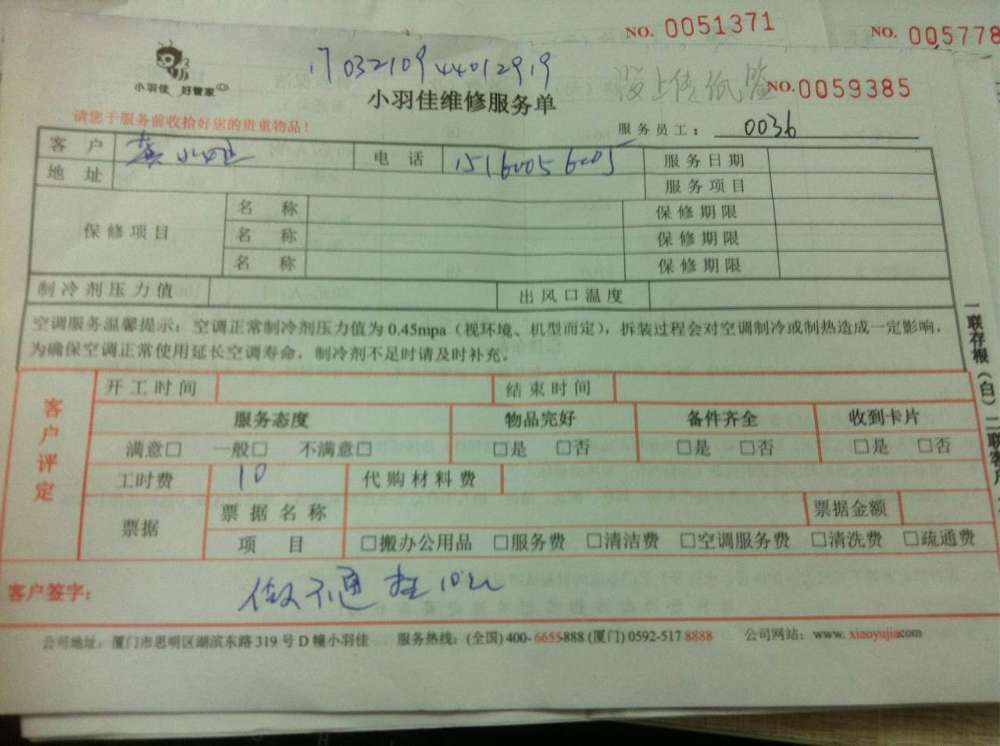 NO. 0051371
NO. 005778
小羽佳 好管家
17032109440129 19
小羽佳维修服务单
没上传纸
NO.0059385
请您于服务前收拾好您的贵重物品！
服务员工： 0036
客户 小姐 电话 15160056005 服务日期
地址 服务项目
保修项目 名称 保修期限
名称 保修期限
名称 保修期限
制冷剂压力值 出风口温度
空调服务温馨提示：空调正常制冷剂压力值为 0.45mpa（视环境、机型而定），拆装过程会对空调制冷或制热造成一定影响，
为确保空调正常使用延长空调寿命，制冷剂不足时请及时补充。
客户评定
开工时间 结束时间
服务态度 物品完好 备件齐全 收到卡片
满意□ 一般□ 不满意□ □是 □否 □是 □否 □是 □否
工时费 10 代购材料费
票据 票据名称 票据金额
项目 □搬办公用品 □服务费 □清洁费 □空调服务费 □清洗费 □疏通费
客户签字： 做不通 10元
公司地址：厦门市思明区湖滨东路 319 号 D 幢小羽佳 服务热线：(全国) 400-6655888 (厦门) 0592-517 8888 公司网站：www. xiaoyujia.com
一联存根（白）二联客户